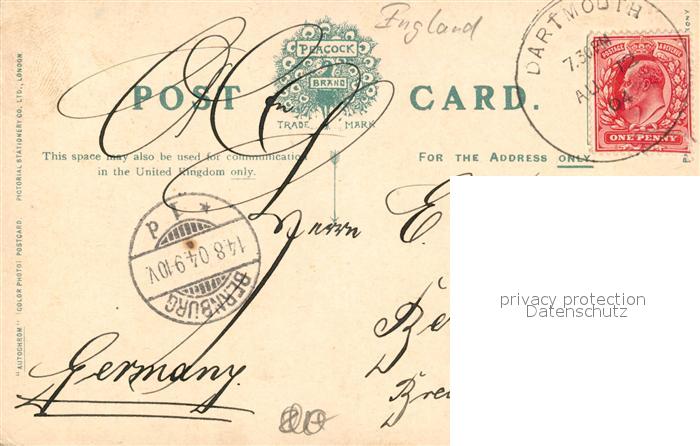 England
PEACOCK
BRAND
POST CARD.
TRADE MARK
This space may also be used for communication
in the United Kingdom only.
FOR THE ADDRESS ONLY
DARTMOUTH
7.30PM
AU 12
04
POSTAGE & REVENUE
ONE PENNY
Herrn E.
BERNBURG
14.8.04.9-10V.
Be
Bre
Germany.
"AUTOCHROM" (COLOR PHOTO) POSTCARD PICTORIAL STATIONERY CO., LTD., LONDON.
privacy protection
Datenschutz